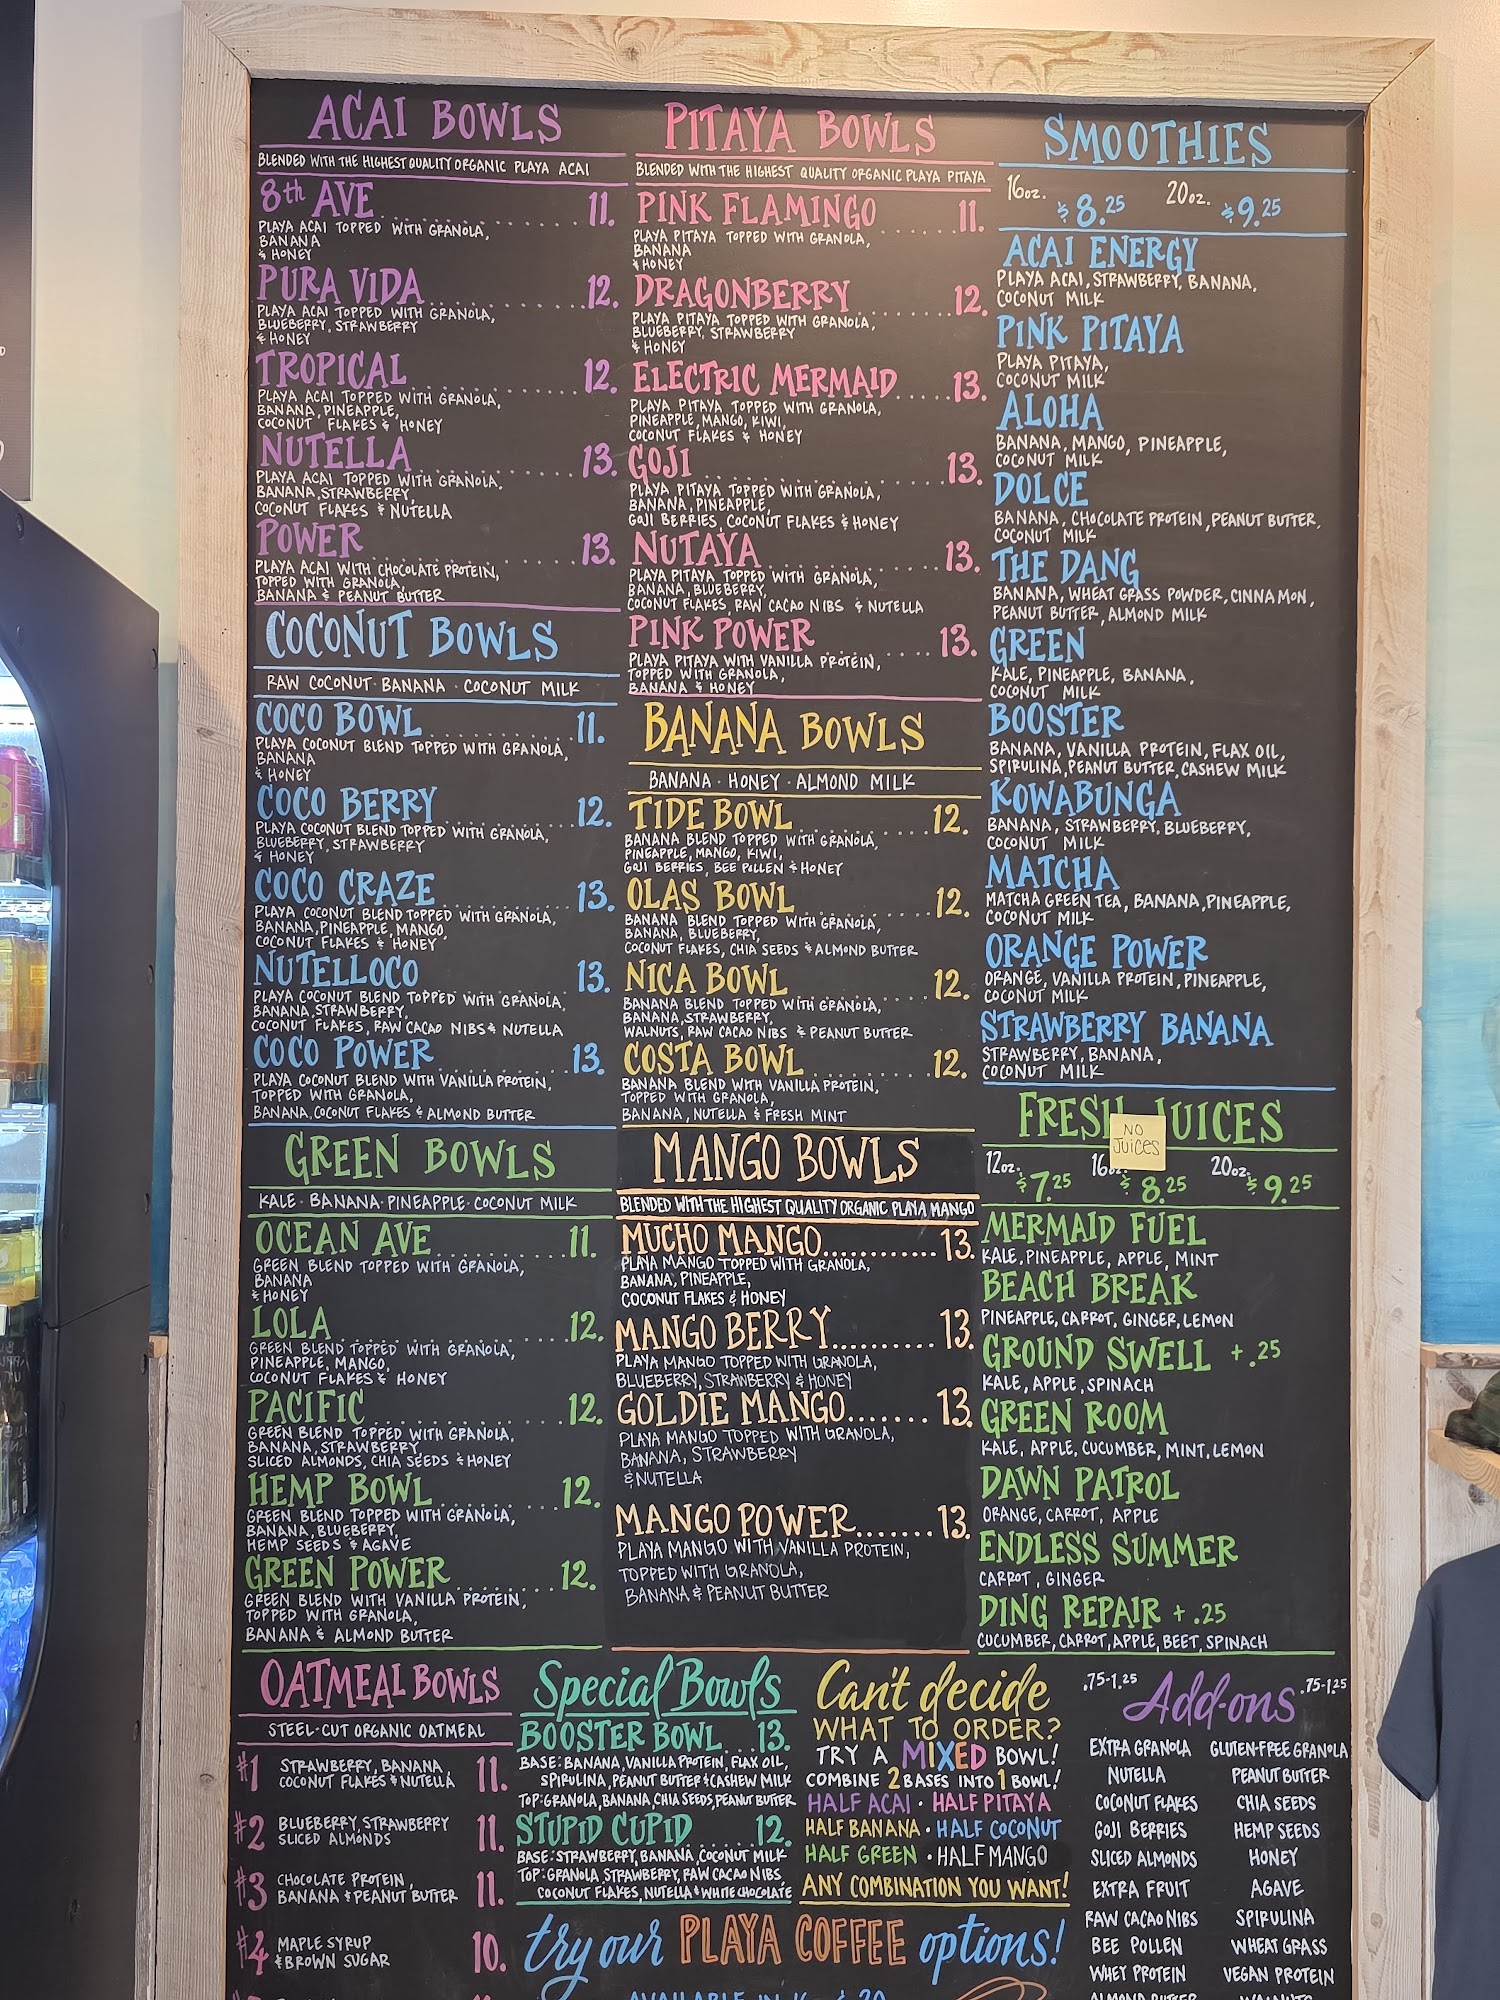 ACAI BOWLS
BLENDED WITH THE HIGHEST QUALITY ORGANIC PLAYA ACAI
8th AVE 11.
PLAYA ACAI TOPPED WITH GRANOLA,
BANANA
& HONEY
PURA VIDA 12.
PLAYA ACAI TOPPED WITH GRANOLA,
BLUEBERRY, STRAWBERRY
& HONEY
TROPICAL 12.
PLAYA ACAI TOPPED WITH GRANOLA,
BANANA, PINEAPPLE,
COCONUT FLAKES & HONEY
NUTELLA 13.
PLAYA ACAI TOPPED WITH GRANOLA,
BANANA, STRAWBERRY,
COCONUT FLAKES & NUTELLA
POWER 13.
PLAYA ACAI WITH CHOCOLATE PROTEIN,
TOPPED WITH GRANOLA,
BANANA & PEANUT BUTTER
COCONUT BOWLS
RAW COCONUT · BANANA · COCONUT MILK
COCO BOWL 11.
PLAYA COCONUT BLEND TOPPED WITH GRANOLA,
BANANA
& HONEY
COCO BERRY 12.
PLAYA COCONUT BLEND TOPPED WITH GRANOLA,
BLUEBERRY, STRAWBERRY
& HONEY
COCO CRAZE 13.
PLAYA COCONUT BLEND TOPPED WITH GRANOLA,
BANANA, PINEAPPLE, MANGO,
COCONUT FLAKES & HONEY
NUTELLOCO 13.
PLAYA COCONUT BLEND TOPPED WITH GRANOLA,
BANANA, STRAWBERRY,
COCONUT FLAKES, RAW CACAO NIBS & NUTELLA
COCO POWER 13.
PLAYA COCONUT BLEND WITH VANILLA PROTEIN,
TOPPED WITH GRANOLA,
BANANA, COCONUT FLAKES & ALMOND BUTTER
GREEN BOWLS
KALE · BANANA · PINEAPPLE · COCONUT MILK
OCEAN AVE 11.
GREEN BLEND TOPPED WITH GRANOLA,
BANANA
& HONEY
LOLA 12.
GREEN BLEND TOPPED WITH GRANOLA,
PINEAPPLE, MANGO,
COCONUT FLAKES & HONEY
PACIFIC 12.
GREEN BLEND TOPPED WITH GRANOLA,
BANANA, STRAWBERRY,
SLICED ALMONDS, CHIA SEEDS & HONEY
HEMP BOWL 12.
GREEN BLEND TOPPED WITH GRANOLA,
BANANA, BLUEBERRY,
HEMP SEEDS & AGAVE
GREEN POWER 12.
GREEN BLEND WITH VANILLA PROTEIN,
TOPPED WITH GRANOLA,
BANANA & ALMOND BUTTER
PITAYA BOWLS
BLENDED WITH THE HIGHEST QUALITY ORGANIC PLAYA PITAYA
PINK FLAMINGO 11.
PLAYA PITAYA TOPPED WITH GRANOLA,
BANANA
& HONEY
DRAGONBERRY 12.
PLAYA PITAYA TOPPED WITH GRANOLA,
BLUEBERRY, STRAWBERRY
& HONEY
ELECTRIC MERMAID 13.
PLAYA PITAYA TOPPED WITH GRANOLA,
PINEAPPLE, MANGO, KIWI,
COCONUT FLAKES & HONEY
GOJI 13.
PLAYA PITAYA TOPPED WITH GRANOLA,
BANANA, PINEAPPLE,
GOJI BERRIES, COCONUT FLAKES & HONEY
NUTAYA 13.
PLAYA PITAYA TOPPED WITH GRANOLA,
BANANA, BLUEBERRY,
COCONUT FLAKES, RAW CACAO NIBS & NUTELLA
PINK POWER 13.
PLAYA PITAYA WITH VANILLA PROTEIN,
TOPPED WITH GRANOLA,
BANANA & HONEY
BANANA BOWLS
BANANA · HONEY · ALMOND MILK
TIDE BOWL 12.
BANANA BLEND TOPPED WITH GRANOLA,
PINEAPPLE, MANGO, KIWI,
GOJI BERRIES, BEE POLLEN & HONEY
OLAS BOWL 12.
BANANA BLEND TOPPED WITH GRANOLA,
BANANA, BLUEBERRY,
COCONUT FLAKES, CHIA SEEDS & ALMOND BUTTER
NICA BOWL 12.
BANANA BLEND TOPPED WITH GRANOLA,
BANANA, STRAWBERRY,
WALNUTS, RAW CACAO NIBS & PEANUT BUTTER
COSTA BOWL 12.
BANANA BLEND WITH VANILLA PROTEIN,
TOPPED WITH GRANOLA,
BANANA, NUTELLA & FRESH MINT
MANGO BOWLS
BLENDED WITH THE HIGHEST QUALITY ORGANIC PLAYA MANGO
MUCHO MANGO............13.
PLAYA MANGO TOPPED WITH GRANOLA,
BANANA, PINEAPPLE,
COCONUT FLAKES & HONEY
MANGO BERRY..........13.
PLAYA MANGO TOPPED WITH GRANOLA,
BLUEBERRY, STRAWBERRY & HONEY
GOLDIE MANGO.......13.
PLAYA MANGO TOPPED WITH GRANOLA,
BANANA, STRAWBERRY
& NUTELLA
MANGO POWER.......13.
PLAYA MANGO WITH VANILLA PROTEIN,
TOPPED WITH GRANOLA,
BANANA & PEANUT BUTTER
SMOOTHIES
16oz. $8.25 20oz. $9.25
ACAI ENERGY
PLAYA ACAI, STRAWBERRY, BANANA,
COCONUT MILK
PINK PITAYA
PLAYA PITAYA,
COCONUT MILK
ALOHA
BANANA, MANGO, PINEAPPLE,
COCONUT MILK
DOLCE
BANANA, CHOCOLATE PROTEIN, PEANUT BUTTER,
COCONUT MILK
THE DANG
BANANA, WHEAT GRASS POWDER, CINNAMON,
PEANUT BUTTER, ALMOND MILK
GREEN
KALE, PINEAPPLE, BANANA,
COCONUT MILK
BOOSTER
BANANA, VANILLA PROTEIN, FLAX OIL,
SPIRULINA, PEANUT BUTTER, CASHEW MILK
KOWABUNGA
BANANA, STRAWBERRY, BLUEBERRY,
COCONUT MILK
MATCHA
MATCHA GREEN TEA, BANANA, PINEAPPLE,
COCONUT MILK
ORANGE POWER
ORANGE, VANILLA PROTEIN, PINEAPPLE,
COCONUT MILK
STRAWBERRY BANANA
STRAWBERRY, BANANA,
COCONUT MILK
FRESH JUICES
NO
JUICES
12oz. $7.25 16oz. $8.25 20oz. $9.25
MERMAID FUEL
KALE, PINEAPPLE, APPLE, MINT
BEACH BREAK
PINEAPPLE, CARROT, GINGER, LEMON
GROUND SWELL +.25
KALE, APPLE, SPINACH
GREEN ROOM
KALE, APPLE, CUCUMBER, MINT, LEMON
DAWN PATROL
ORANGE, CARROT, APPLE
ENDLESS SUMMER
CARROT, GINGER
DING REPAIR +.25
CUCUMBER, CARROT, APPLE, BEET, SPINACH
OATMEAL BOWLS
STEEL-CUT ORGANIC OATMEAL
#1 STRAWBERRY, BANANA, 11.
COCONUT FLAKES & NUTELLA
#2 BLUEBERRY, STRAWBERRY 11.
SLICED ALMONDS
#3 CHOCOLATE PROTEIN, 11.
BANANA & PEANUT BUTTER
#4 MAPLE SYRUP 10.
& BROWN SUGAR
Special Bowls
BOOSTER BOWL...13.
BASE: BANANA, VANILLA PROTEIN, FLAX OIL,
SPIRULINA, PEANUT BUTTER & CASHEW MILK
TOP: GRANOLA, BANANA, CHIA SEEDS, PEANUT BUTTER
STUPID CUPID 12.
BASE: STRAWBERRY, BANANA, COCONUT MILK
TOP: GRANOLA, STRAWBERRY, RAW CACAO NIBS,
COCONUT FLAKES, NUTELLA & WHITE CHOCOLATE
Can't decide
WHAT TO ORDER?
TRY A MIXED BOWL!
COMBINE 2 BASES INTO 1 BOWL!
HALF ACAI · HALF PITAYA
HALF BANANA · HALF COCONUT
HALF GREEN · HALF MANGO
ANY COMBINATION YOU WANT!
try our PLAYA COFFEE options!
.75-1.25 Add-ons .75-1.25
EXTRA GRANOLA GLUTEN-FREE GRANOLA
NUTELLA PEANUT BUTTER
COCONUT FLAKES CHIA SEEDS
GOJI BERRIES HEMP SEEDS
SLICED ALMONDS HONEY
EXTRA FRUIT AGAVE
RAW CACAO NIBS SPIRULINA
BEE POLLEN WHEAT GRASS
WHEY PROTEIN VEGAN PROTEIN
ALMOND BUTTER WALNUTS